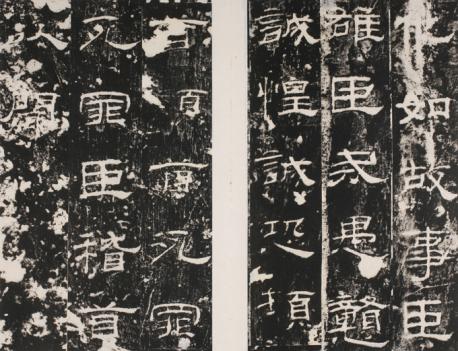 他如故事臣
雄臣戒愚戇
誠惶誠恐頓
首頓首死罪
死罪臣稽首
以聞